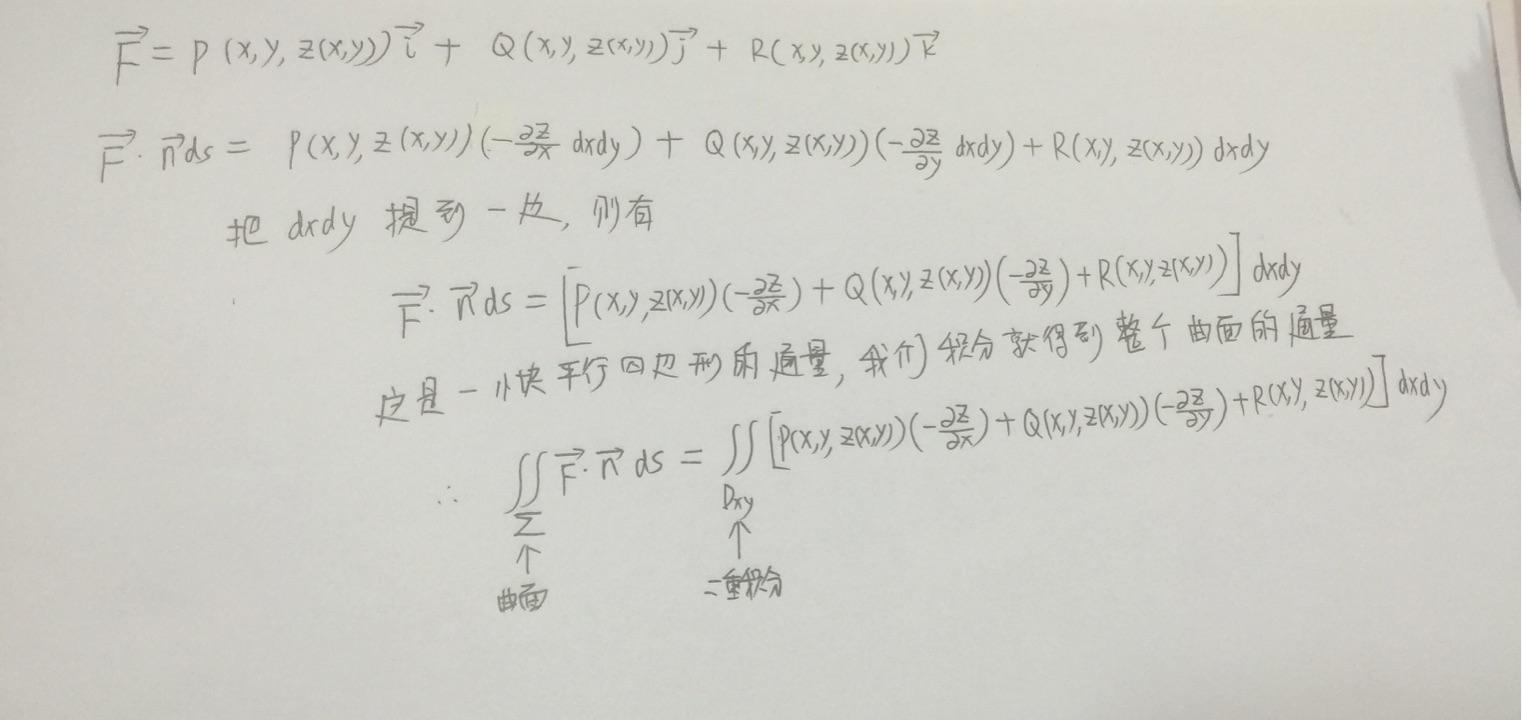 $\vec{F} = P(x,y,z(x,y))\vec{i} + Q(x,y,z(x,y))\vec{j} + R(x,y,z(x,y))\vec{k}$
$\vec{F}\cdot\vec{n}ds = P(x,y,z(x,y))(-\frac{\partial z}{\partial x}dxdy) + Q(x,y,z(x,y))(-\frac{\partial z}{\partial y}dxdy) + R(x,y,z(x,y))dxdy$
把 dxdy 提到一边, 则有
$\vec{F}\cdot\vec{n}ds = [P(x,y,z(x,y))(-\frac{\partial z}{\partial x}) + Q(x,y,z(x,y))(-\frac{\partial z}{\partial y}) + R(x,y,z(x,y))]dxdy$
这是一小块平行四边形的通量, 我们积分就得到整个曲面的通量
$\therefore \iint_{\Sigma}\vec{F}\cdot\vec{n}ds = \iint_{Dxy}[P(x,y,z(x,y))(-\frac{\partial z}{\partial x}) + Q(x,y,z(x,y))(-\frac{\partial z}{\partial y}) + R(x,y,z(x,y))]dxdy$
↑ ↑
曲面 二重积分